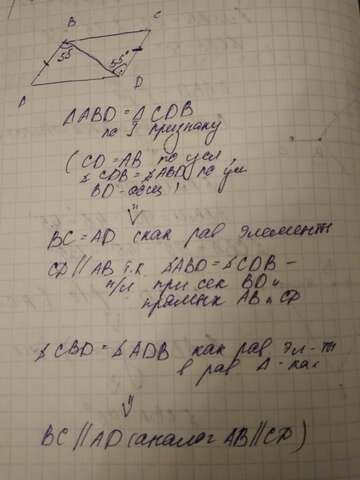 B
C
55
55°
A
D
ΔABD = ΔCDB
по I признаку
(CD = AB по усл
∡CDB = ∡ABD по ус
BD - общ)
⇓
BC = AD (как рав элемент
CD || AB т.к. ∡ABD = ∡CDB -
н/л при сек BD и
прямых AB и CD
∡CBD = ∡ADB как рав эл-ты
в рав Δ-ках
⇓
BC || AD (аналог AB || CD)